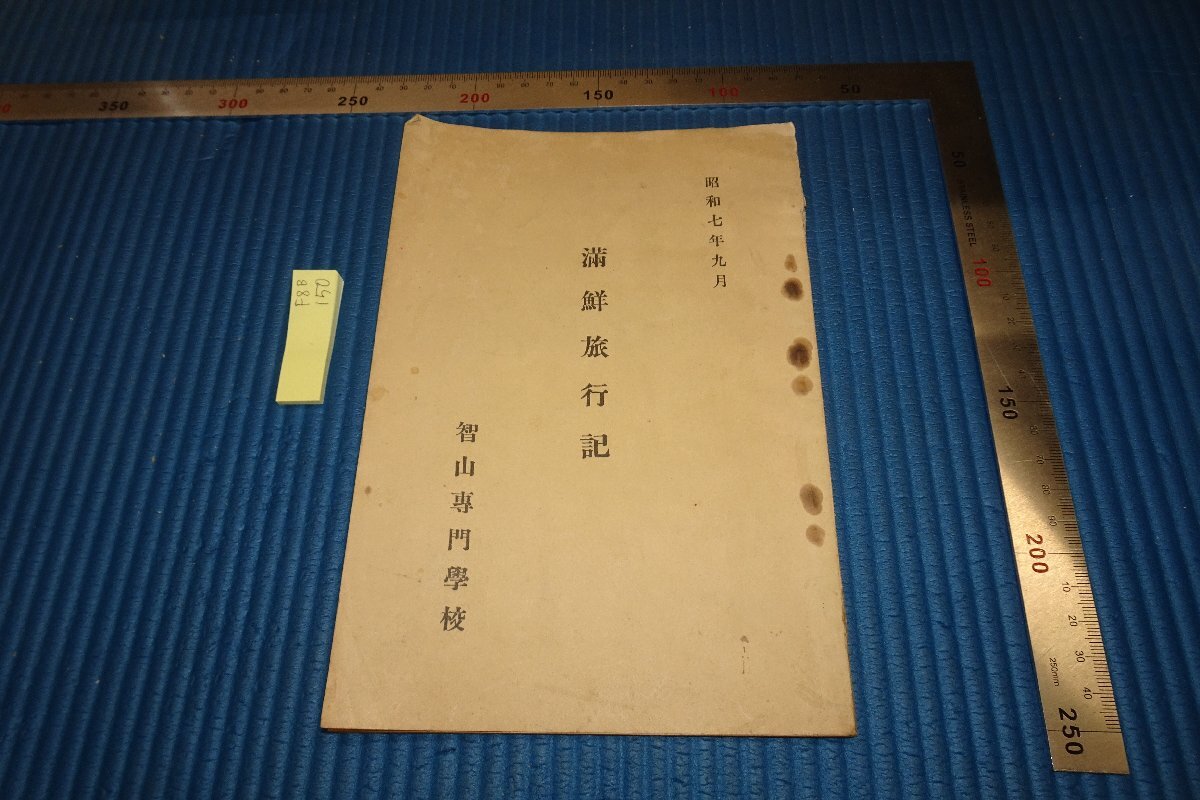 昭和七年九月
滿鮮旅行記
智山專門學校
F8B
150
350
300
250
200
150
100
50
50
STAINLESS STEEL
100
150
200
250mm
250